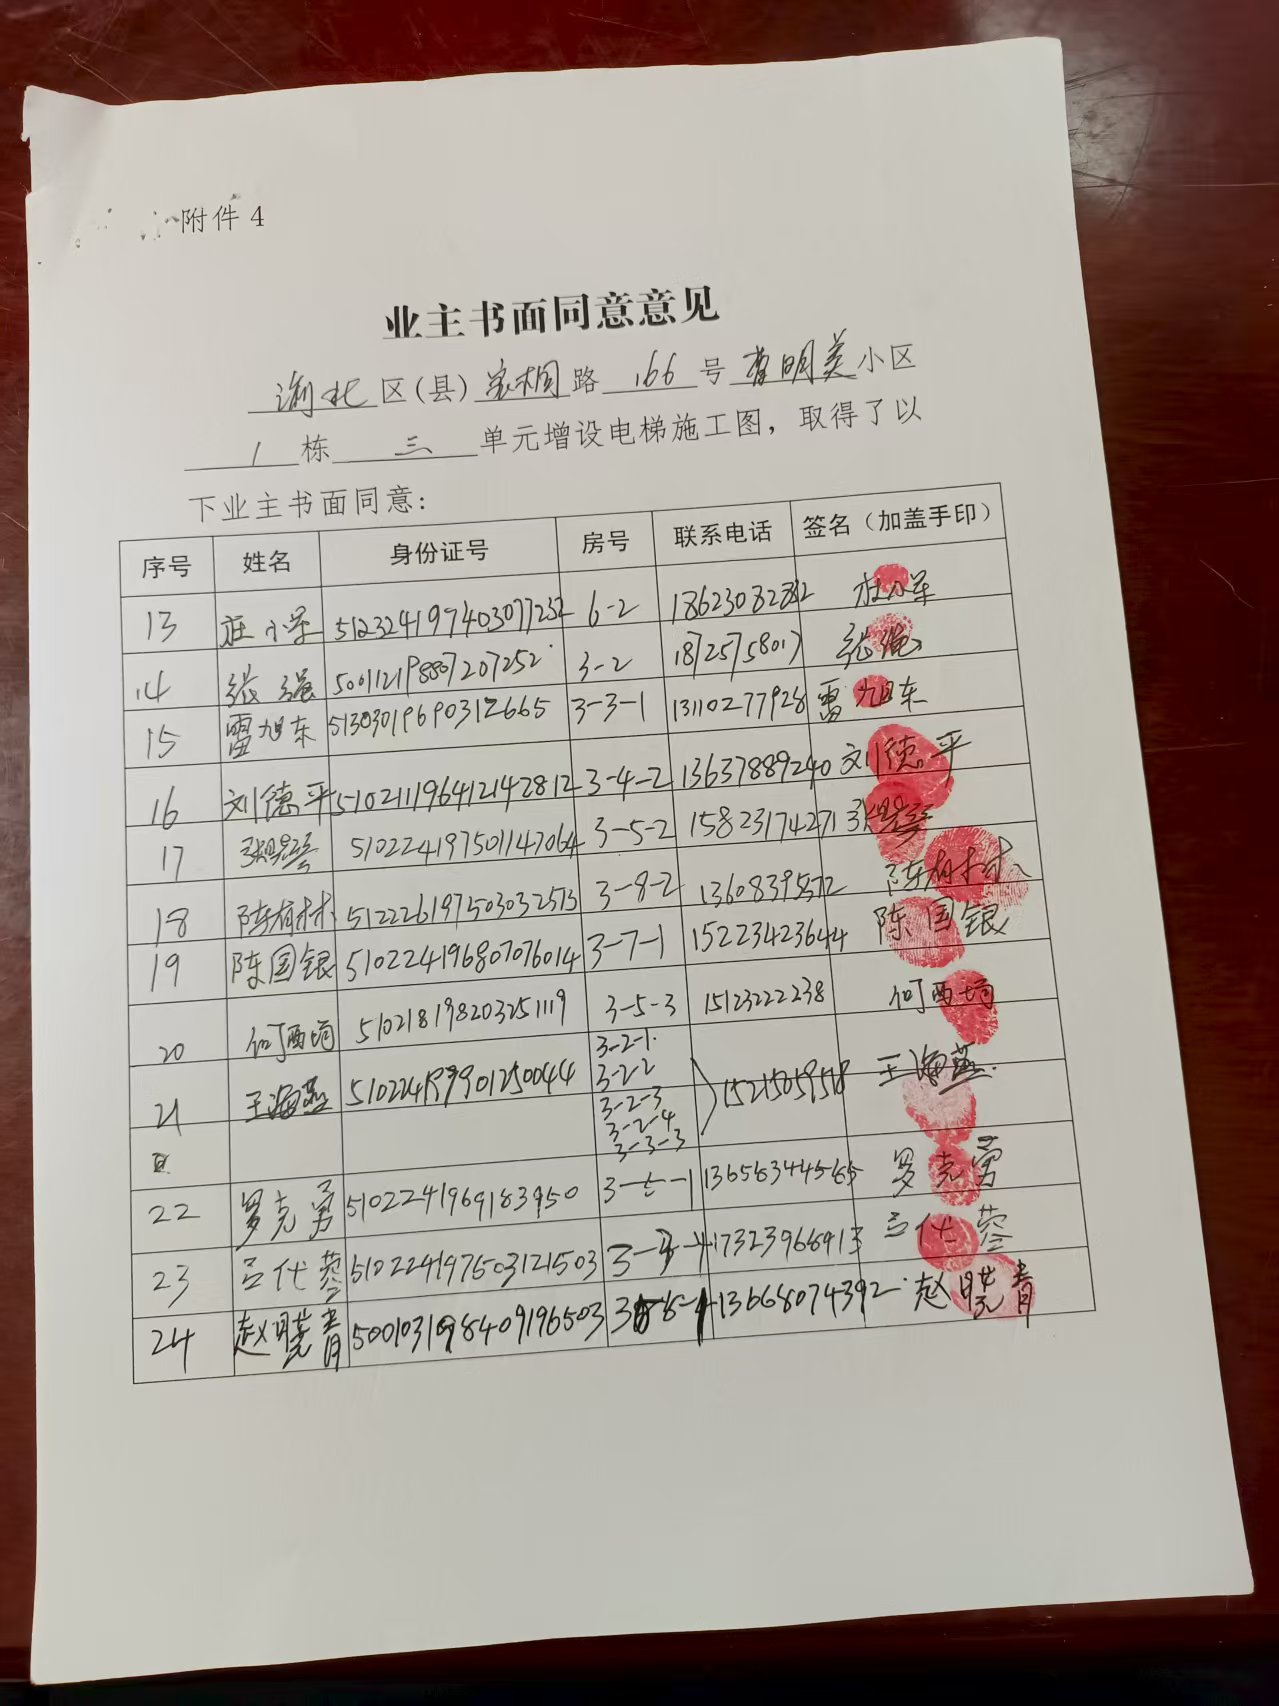 附件4
业主书面同意意见
渝北区(县)宝桐路166号普明美小区
1栋三单元增设电梯施工图，取得了以
下业主书面同意：
序号 姓名 身份证号 房号 联系电话 签名（加盖手印）
13 小军 512324197403077232 6-2 小军
14 张强 500112198807207252 3-2 18725758017 张强
15 雷旭东 513030196903122665 3-3-1 13110277928 雷旭东
16 刘德平 510211196412142812 3-4-2 13637889240 刘德平
17 510224197501147064 3-5-2 15823174271
18 陈有材 512226197503032513 3-8-2 陈有材
19 陈国银 510224196807076014 3-7-1 15223423644 陈国银
20 何西 510218198203251119 3-5-3 15123222238 何西
21 王海燕 510224197901250044 3-2-1 3-2-2 3-2-3 3-2-4 3-3-3 王海燕
22 罗克勇 5102241969183950 13658344585 罗克勇
23 吕代蓉 510224197503121503 17323968913 吕代蓉
24 赵晓青 500103198409196503 13668074392 赵晓青